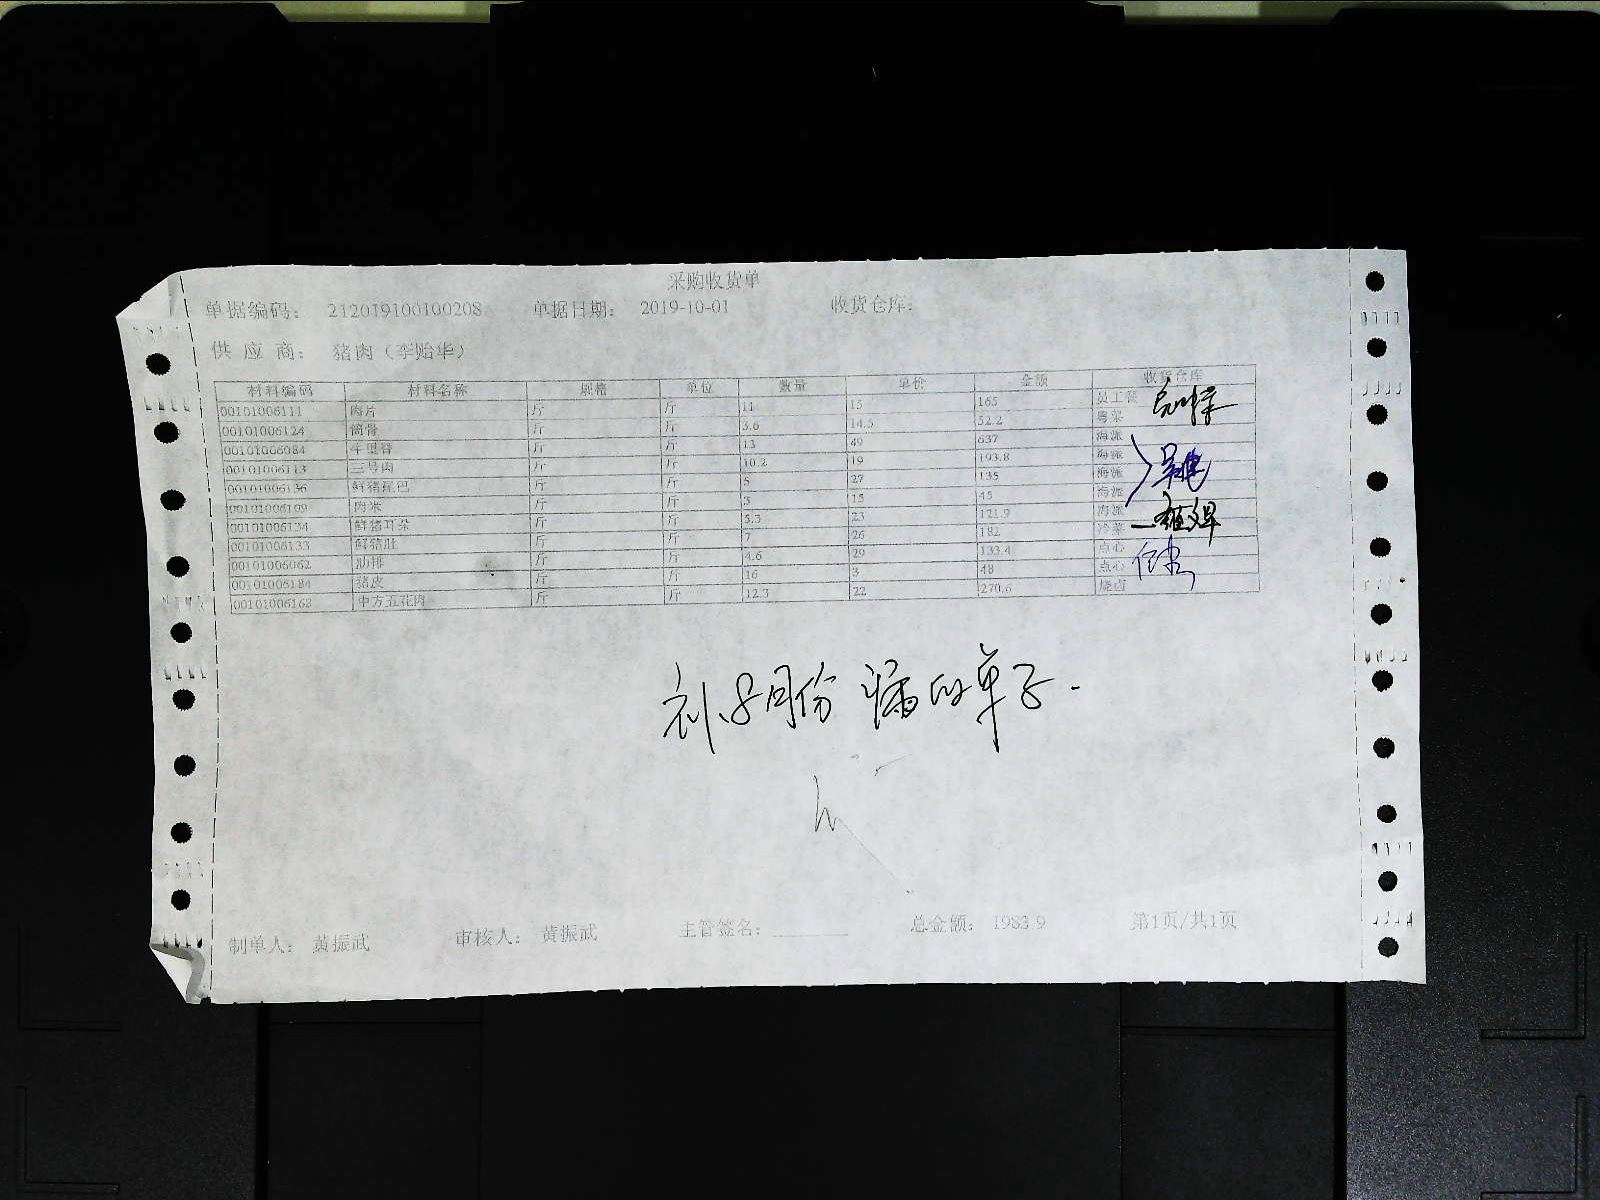 采购收货单
单据编码： 212019100100208 单据日期： 2019-10-01 收货仓库：
供 应 商： 猪肉（李贻华）
材料编码 材料名称 规格 单位 数量 单价 金额 收货仓库
00101006111 肉片 斤 斤 11 15 165 员工餐
00101006124 筒骨 斤 斤 3.6 14.5 52.2 粤菜
00101006084 牛里脊 斤 斤 13 49 637 海派
00101006113 三号肉 斤 斤 10.2 19 193.8 海派
00101006136 鲜猪尾巴 斤 斤 5 27 135 海派
00101006109 肉米 斤 斤 3 15 45 海派
00101006134 鲜猪耳朵 斤 斤 5.3 23 121.9 海派
00101006133 鲜猪肚 斤 斤 7 26 182 冷菜
00101006062 肋排 斤 斤 4.6 29 133.4 点心
00101006184 猪皮 斤 斤 16 3 48 点心
00101006162 中方五花肉 斤 斤 12.3 22 270.6 烧卤
月份 漏的单子.
制单人： 黄振武 审核人： 黄振武 主管签名： 总金额： 1983.9 第1页/共1页